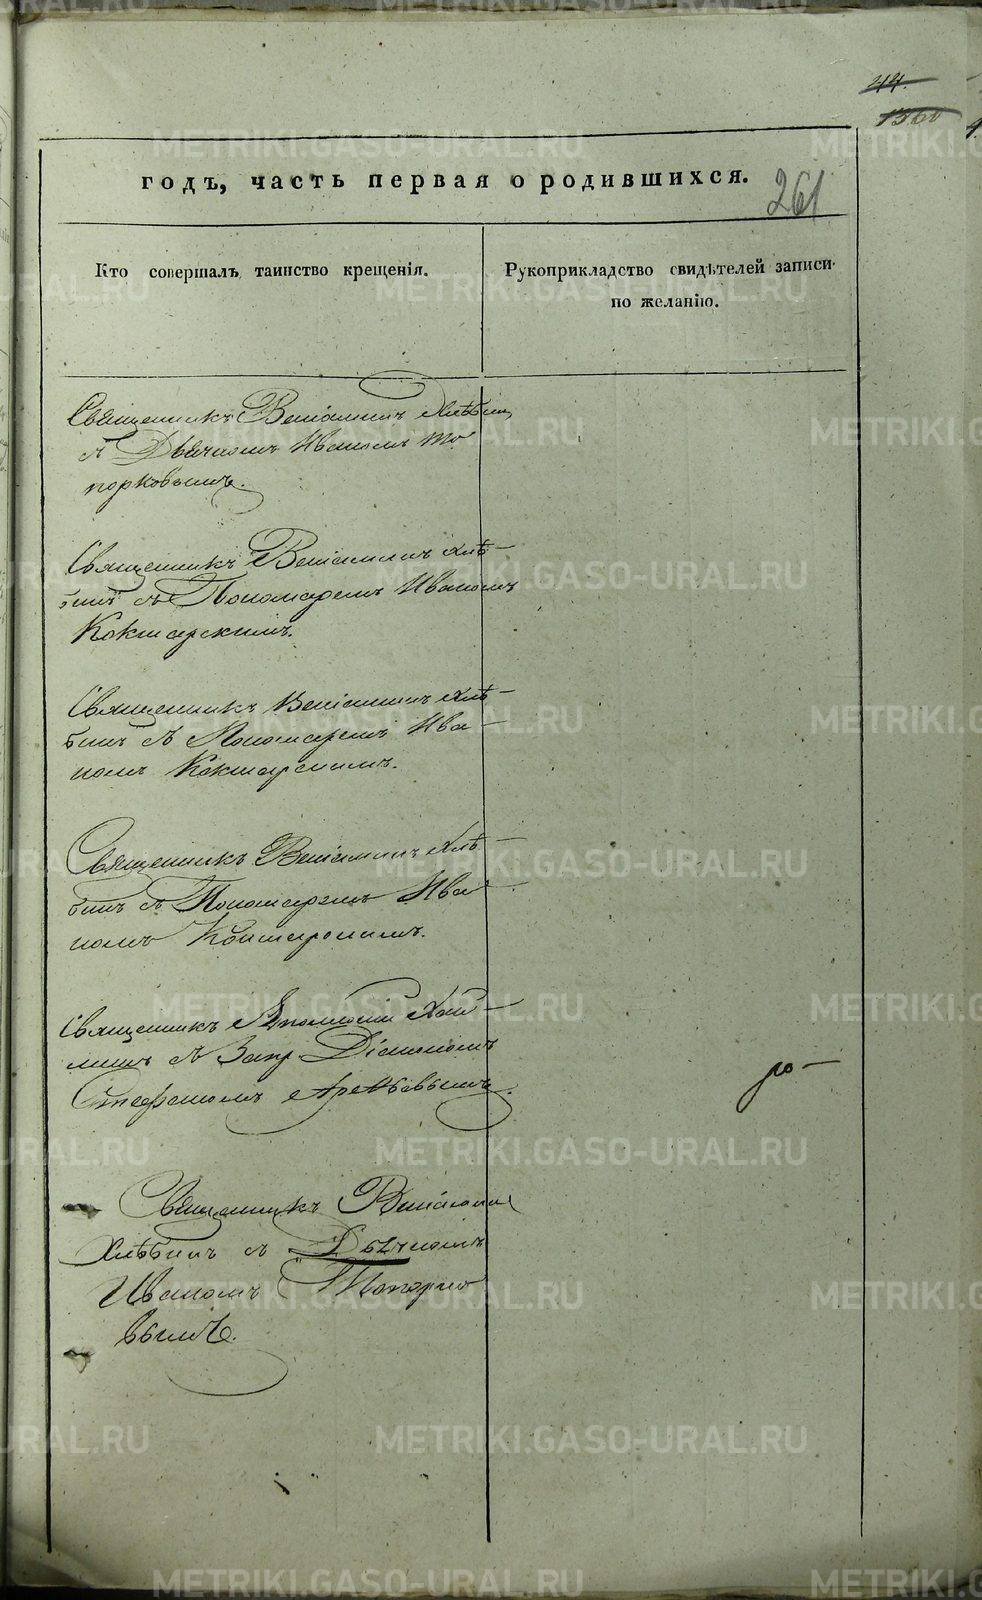 44.
1360
годъ, часть первая о родившихся.
261
Кто совершалъ таинство крещенія.
Рукоприкладство свидѣтелей записи по желанію.
Священникъ Веніаминъ Хлѣбин
съ Дьячкомъ Иваномъ То
порковымъ.
Священникъ Веніаминъ Хлѣ-
бинъ съ Пономаремъ Иваномъ
Кокшарскимъ.
Священникъ Веніаминъ Хлѣ-
бинъ съ Пономаремъ Ива-
номъ Кокшарскимъ.
Священникъ Веніаминъ Хлѣ-
бинъ съ Пономаремъ Ива-
номъ Кокшарскимъ.
Священникъ
съ Діакономъ
Стефаномъ
Священникъ Веніамин
Хлѣбинъ съ Дьячкомъ
Иваномъ Топорко
вымъ.
METRIKI.GASO-URAL.RU